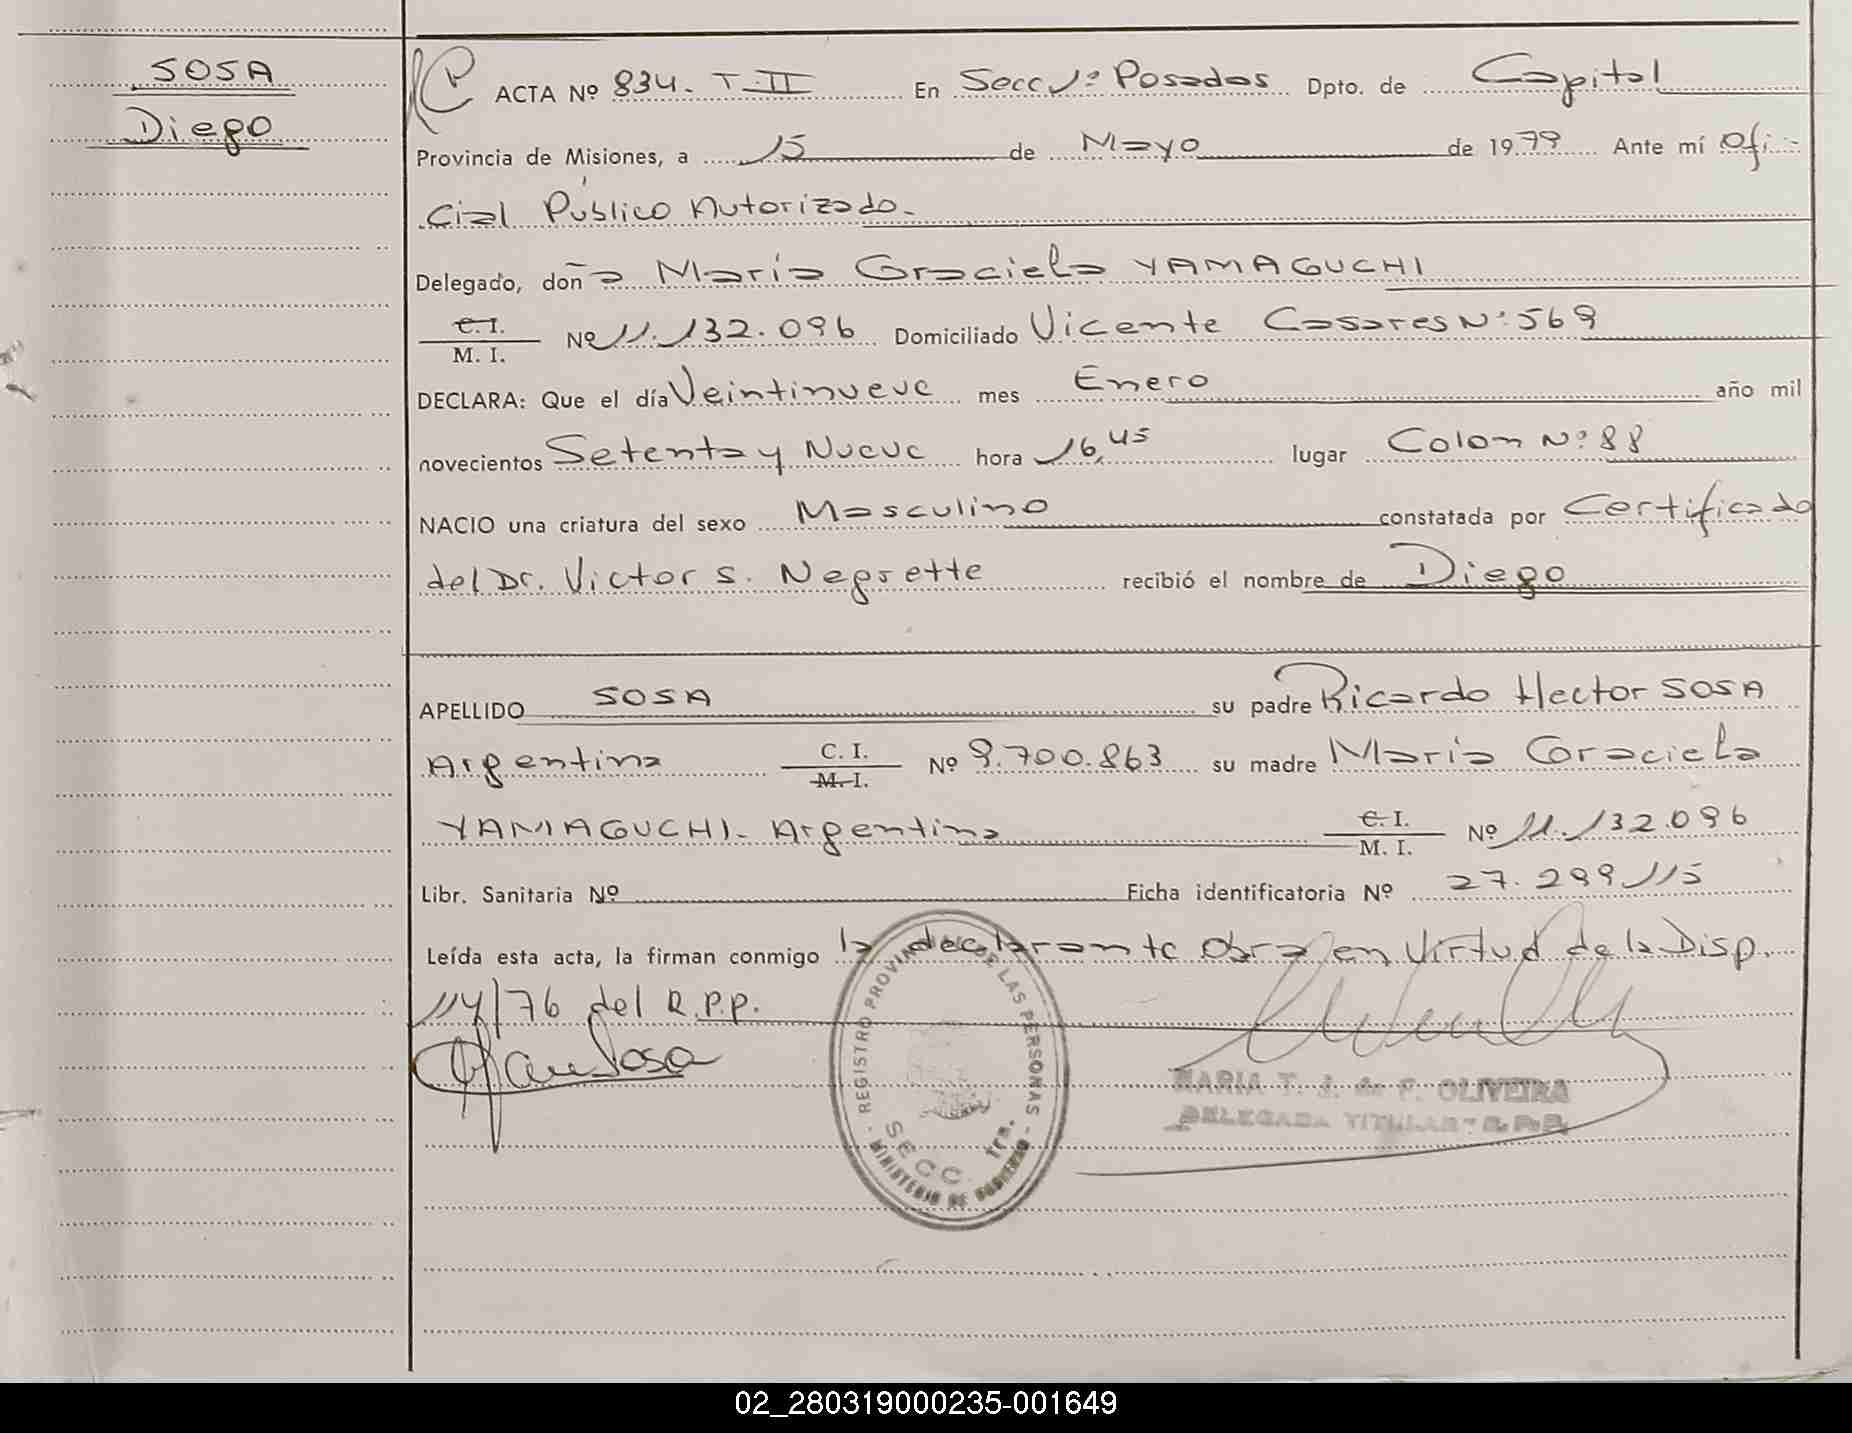 SOSA
Diego
ACTA Nº 834. T-II En Secc 1ª Posadas Dpto. de Capital
Provincia de Misiones, a 15 de Mayo de 1979 Ante mí Ofi-
cial Público Autorizado.
Delegado, doña María Graciela YAMAGUCHI
C. I.
M. I. Nº 11.132.096 Domiciliado Vicente Casares Nº 569
DECLARA: Que el día Veintinueve mes Enero año mil
novecientos Setenta y Nueve hora 16,45 lugar Colon Nº 88
NACIO una criatura del sexo Masculino constatada por Certificado
del Dr. Victor S. Negrette recibió el nombre de Diego
APELLIDO SOSA su padre Ricardo Hector SOSA
Argentina C. I. M. I. Nº 9.700.863 su madre María Graciela
YAMAGUCHI. Argentina C. I. M. I. Nº 11.132.096
Libr. Sanitaria Nº Ficha identificatoria Nº 27.299.115
Leída esta acta, la firman conmigo la declarante Obra en Virtud de la Disp.
114/76 del R.P.P.
Sosa
REGISTRO PROVINCIAL DE LAS PERSONAS
SECC. 1ra.
MINISTERIO DE GOBIERNO
MARIA T. J. de F. OLIVEIRA
DELEGADA TITULAR - R.P.P.
02_280319000235-001649